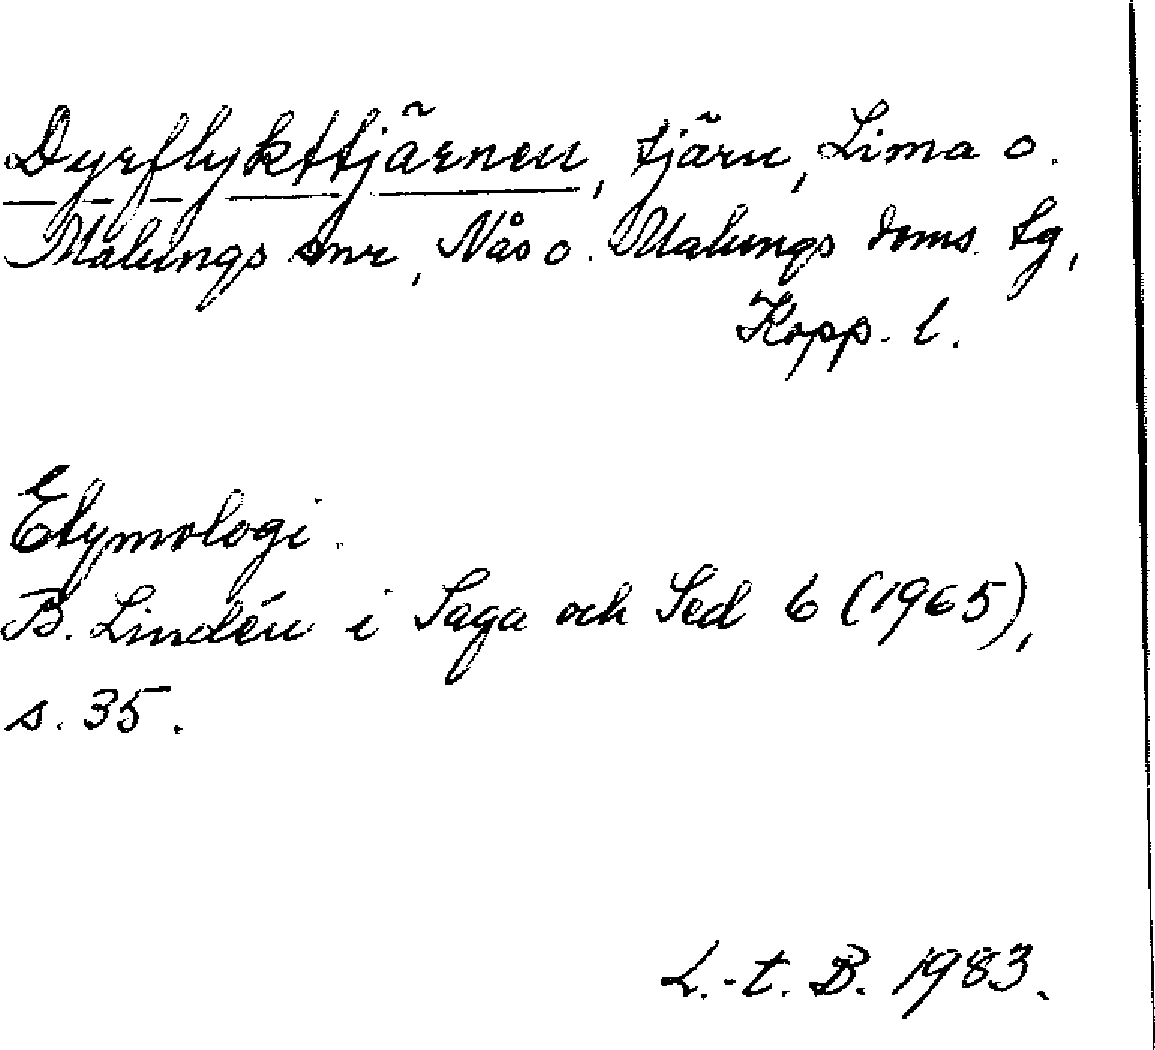 Dyrflykttjärnen, tjärn, Lima o.
Malungs snr, Nås o. Malungs doms. tg,
Kopp. l.
Etymologi.
B. Lindén i Saga och Sed 6 (1965),
s. 35.
L.-t. B. 1983.